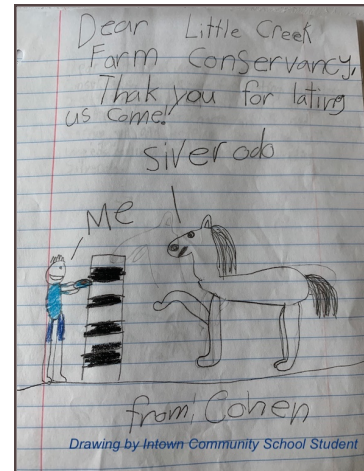 Dear Little Creek
Farm Conservancy,
Thak you for lating
us come!
siverodo
Me
from: Cohen
Drawing by Intown Community School Student